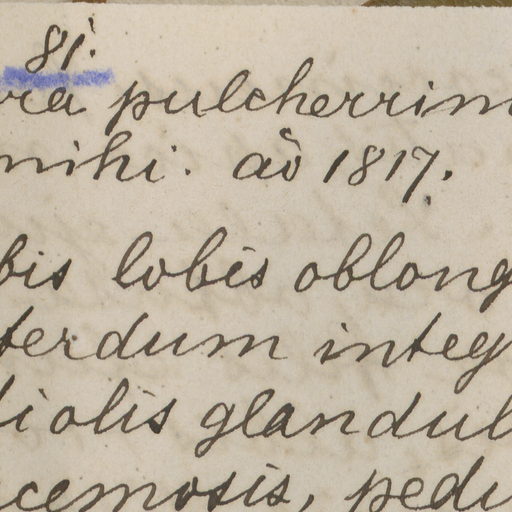 81.
ra pulcherrim
mihi. aō 1817.
bis lobis oblong
terdum integ
iolis glandul
cemosis, pedu